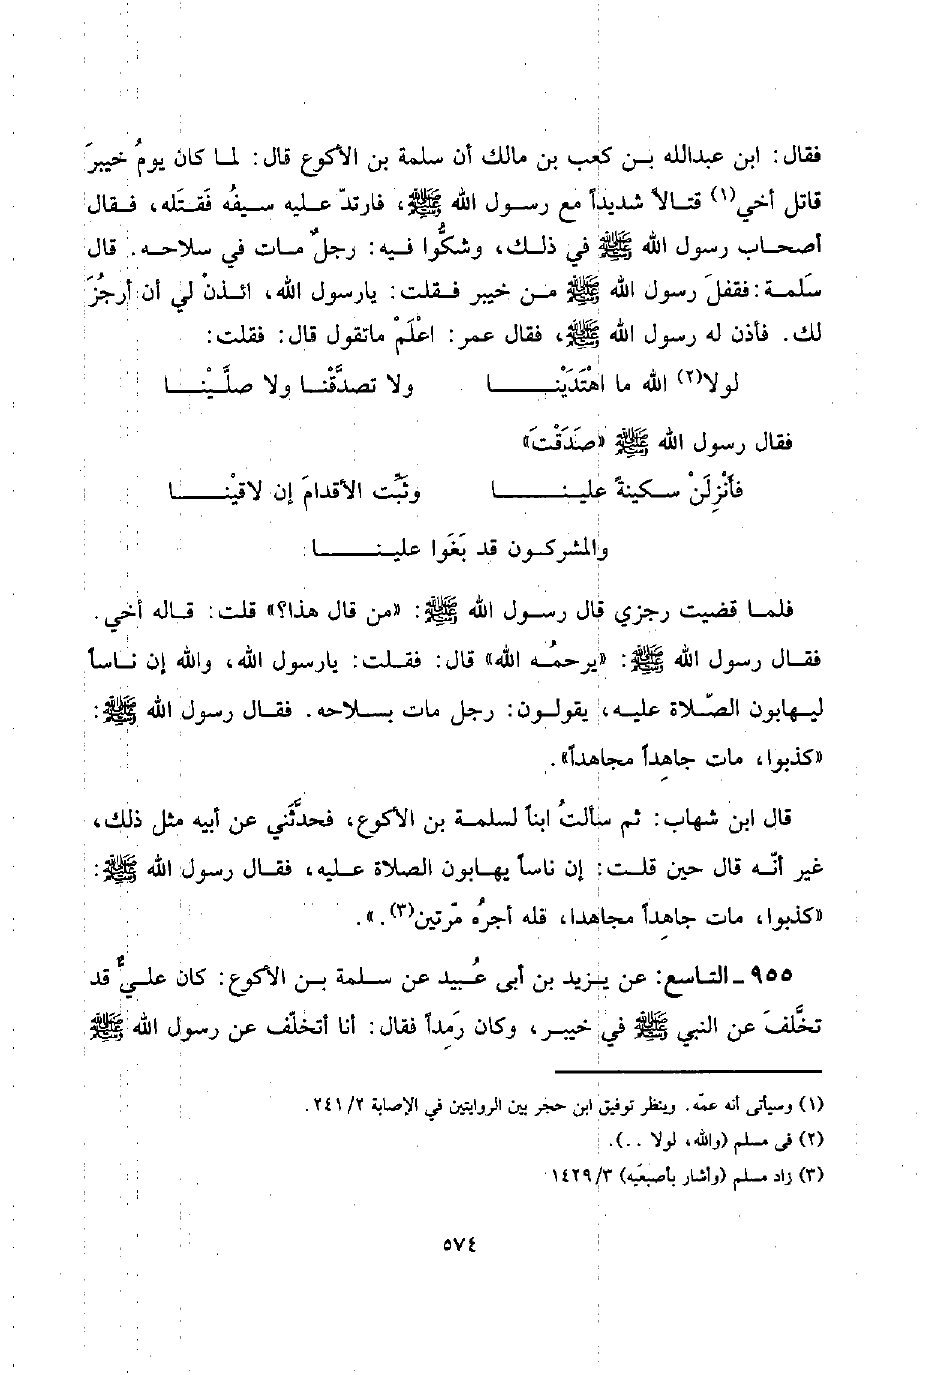 فقال: ابن عبدالله بـن كعب بن مالك أن سلمة بن الأكوع قال: لمـا كان يومُ خيبرَ
قاتل أخي(١) قتـالاً شديداً مع رسـول الله ﷺ، فارتدّ عليه سيفُه فَقتَله، فـقال
أصحاب رسول الله ﷺ في ذلـك، وشكُّوا فيه: رجلٌ مـات في سلاحـه. قال
سَلمـة: فقفلَ رسول الله ﷺ مـن خيبر فـقلت: يارسول الله، ائـذنْ لي أن أرجُزَ
لك. فأذن له رسول الله ﷺ، فقال عمر: اعْلَمْ ماتقول قال: فقلت:
لولا(٢) الله ما اهْتَدَيْنــــا ولا تصدَّقْنـا ولا صلَّيْنــا
فقال رسول الله ﷺ «صَدَقْتَ»
فأَنْزِلَنْ سـكينةً علينــــا وثبِّت الأقدامَ إن لاقيْنـــا
والمشركـون قد بَغَوا علينــــا
فلمـا قضيت رجزي قال رسـول الله ﷺ: «من قال هذا؟» قلت: قـاله أخي.
فقـال رسول الله ﷺ: «يرحمُه الله» قال: فقـلت: يارسول الله، والله إن نـاساً
ليـهابون الصّـلاة عليـه، يقولـون: رجل مات بسـلاحه. فقـال رسول الله ﷺ:
«كذبوا، مات جاهِداً مجاهداً».
قال ابن شهاب: ثم سألتُ ابناً لسلمـة بن الأكوع، فحدَّثَني عن أبيه مثل ذلك،
غير أنّـه قال حين قلـت: إن ناساً يهـابون الصلاة عليه، فقـال رسول الله ﷺ:
«كذبوا، مات جاهِداً مجاهدا، فله أجرُه مّرتين(٣).».
٩٥٥ ـ التـاسع: عن يـزيد بن أبى عُبيد عن سلـمة بـن الأكوع: كان علـيٌّ قد
تخَّلفَ عن النبي ﷺ في خيبـر، وكان رَمِداً فقال: أنا أتخلّف عن رسول الله ﷺ
(١) وسيأتى أنه عمّه. وينظر توفيق ابن حجر بين الروايتين في الإصابة ٢/ ٢٤١.
(٢) فى مسلم (والله، لولا ..).
(٣) زاد مسلم (وأشار بأصبعَيه) ٣/ ١٤٢٩
٥٧٤